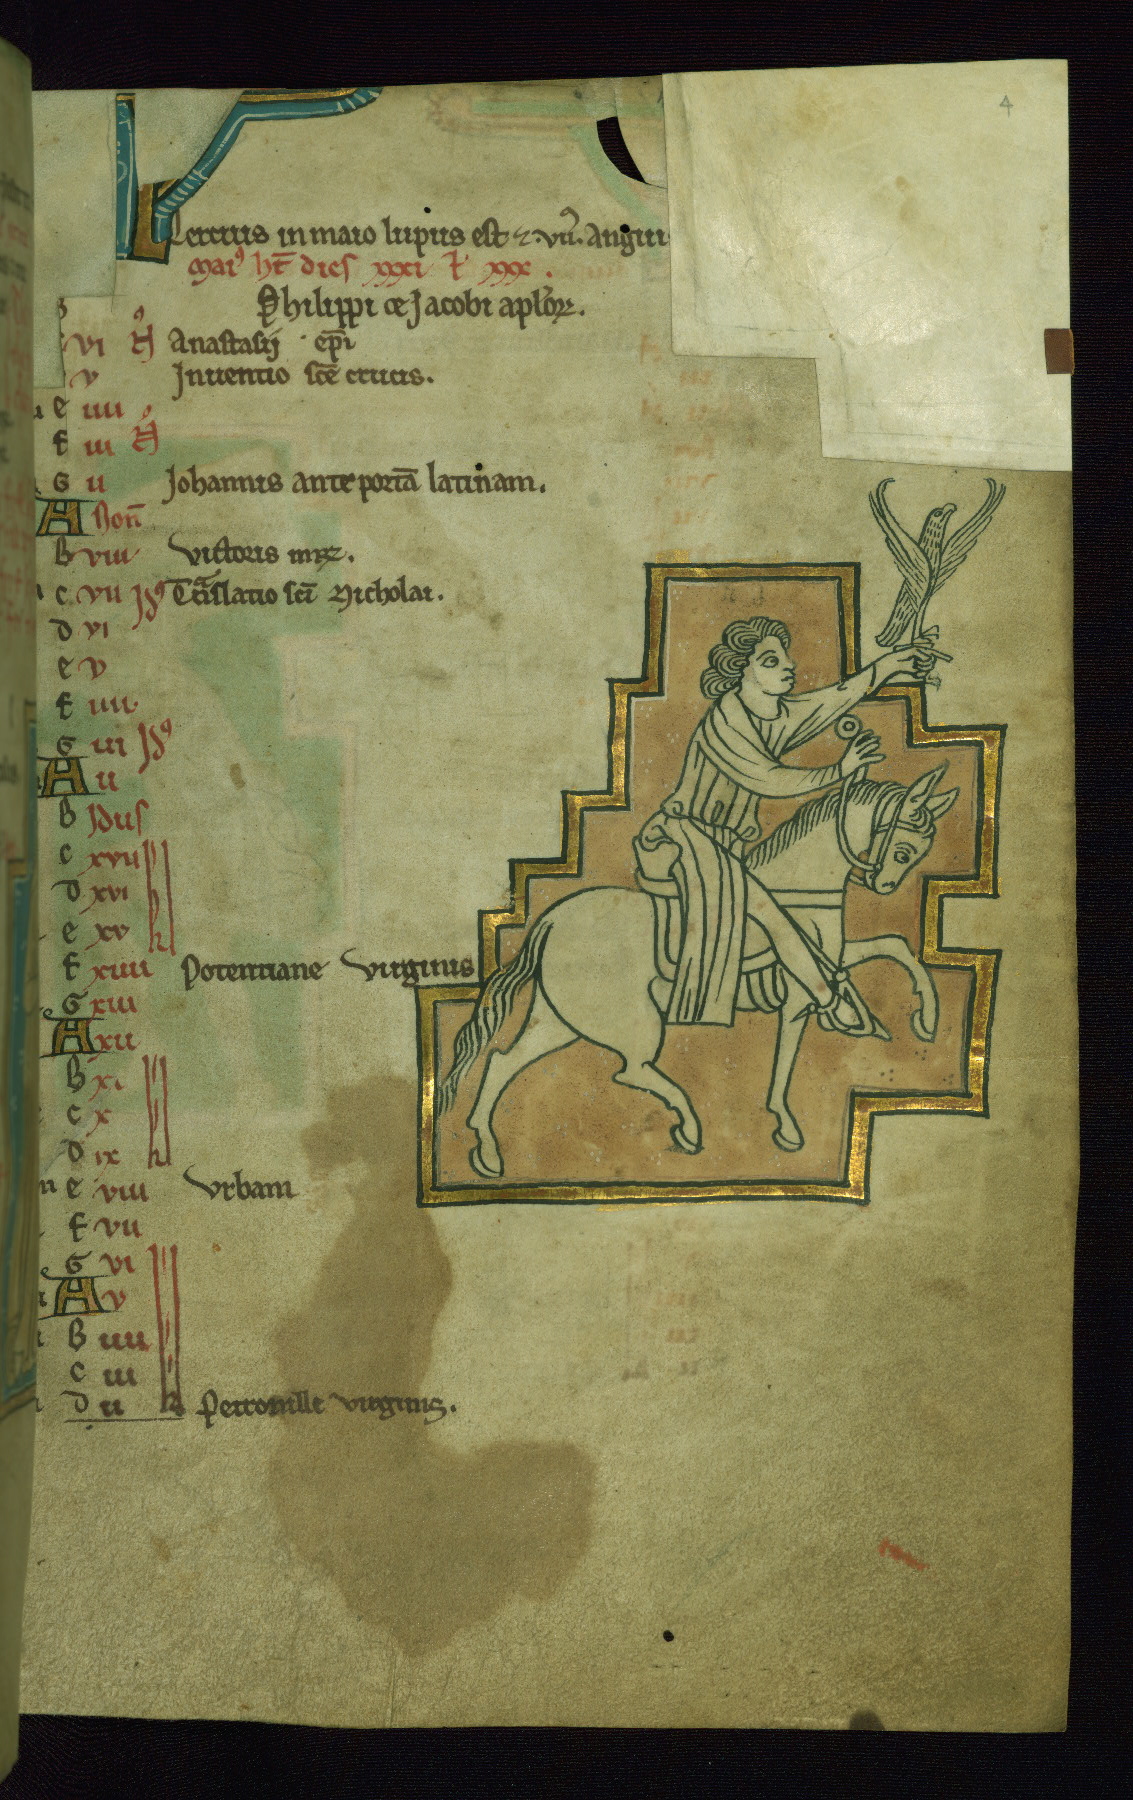 4
Tercius in maio lupus est ⁊ .vii᷒. Angui
Mai᷒ ht̄ dies xxxi ł xxx .
Philippi ⁊ Jacobi aplōꝝ.
vi N᷒ Anastasij ep̄i
v Inuentio sc̄e crucis.
e iiii
f iii N᷒
G ii Johannis ante portā latinam.
A Non̄
b viii Victoris mꝝ.
c vii Id᷒ Trāslatio sc̄i Nicholai.
d vi
e v
f iiii
G iii Id᷒
A ii
b Idus
c xvii
d xvi
e xv
f xiiii Potentiane Virginis
G xiii
A xii
b xi
c x
d ix
e viii Vrbani
f vii
G vi
A v
b iiii
c iii
d ii Petronille virginis.